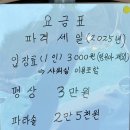 요금표
파격 세일 (2025년)
입장료 (1인) 3000원
→ 샤워실 이용포함
평상 3만원
파라솔 2만 5천원